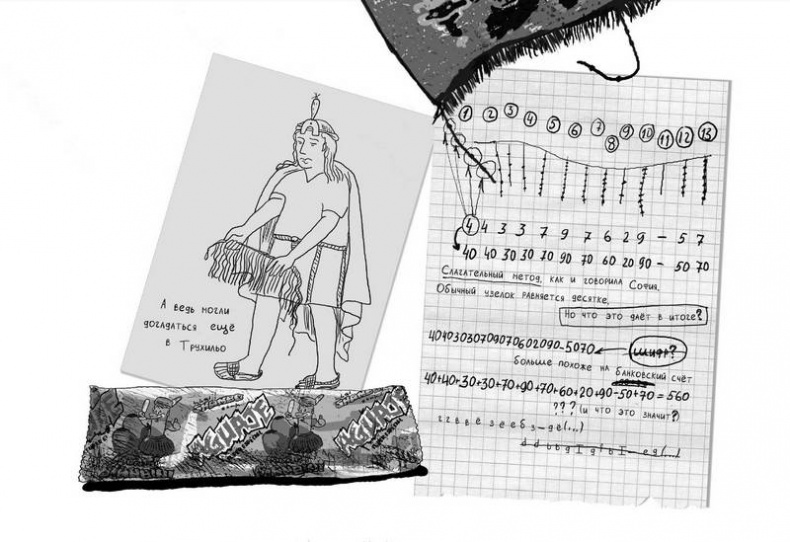 А ведь могли
догадаться ещё
в Трухильо
1 2 3 4 5 6 7 8 9 10 11 12 13
4 4 3 3 7 9 7 6 2 9 – 5 7
40 40 30 30 70 90 70 60 20 90 – 50 70
Слагательный метод, как и говорила София.
Обычный узелок равняется десятке.
Но что это даёт в итоге?
40403030709070602090-5070 шифр?
больше похоже на банковский счёт
40+40+30+30+70+90+70+60+20+90-50+70=560
??? (и что это значит?)
г г в в е з е е б з – де(...)